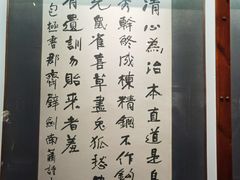 清心為治本直道是身
幹終成棟精鋼不作鈎
充鼠雀喜草盡兔狐愁
有遺訓勿貽來者羞
包拯書郡齋壁 劍南蕭